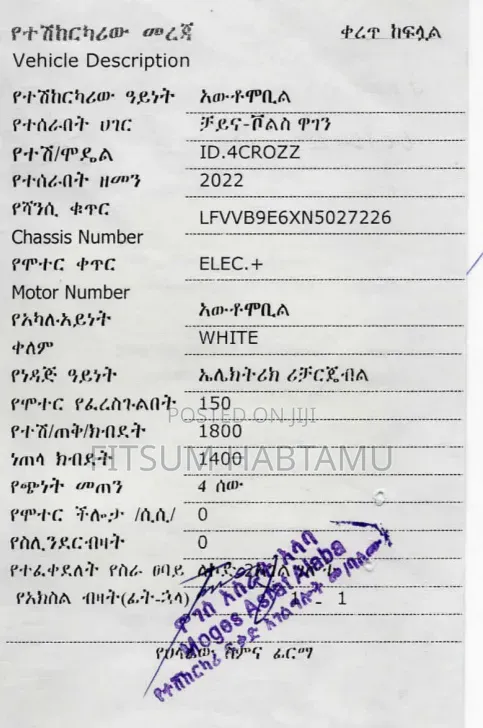 የተሽከርካሪው መረጃ ቀረጥ ከፍሏል
Vehicle Description
የተሽከርካሪው ዓይነት አውቶሞቢል
የተሰራበት ሀገር ቻይና-ቮልስ ዋገን
የተሽ/ሞዴል ID.4CROZZ
የተሰራበት ዘመን 2022
የሻንሲ ቁጥር LFVVB9E6XN5027226
Chassis Number
የሞተር ቀጥር ELEC.+
Motor Number
የአካሉ-አይነት አውቶሞቢል
ቀለም WHITE
የነዳጅ ዓይነት ኤሌክትሪክ ሪቻርጄብል
የሞተር የፈረስጉልበት 150
POSTED ON JIJI
የተሽ/ጠቅ/ክብደት 1800
ነጠላ ክብደት 1400
FITSUM HABTAMU
የጭነት መጠን 4 ሰው
የሞተር ችሎታ /ሲሲ/ 0
የሲሊንደርብዛት 0
የተፈቀደለት የስራ ፀባይ
የአክስል ብዛት(ፊት-ኋላ) 1 - 1
ሞገስ አስፋው አላባ
Moges Asfaw Alaba
የኃላፊው ስምና ፊርማ